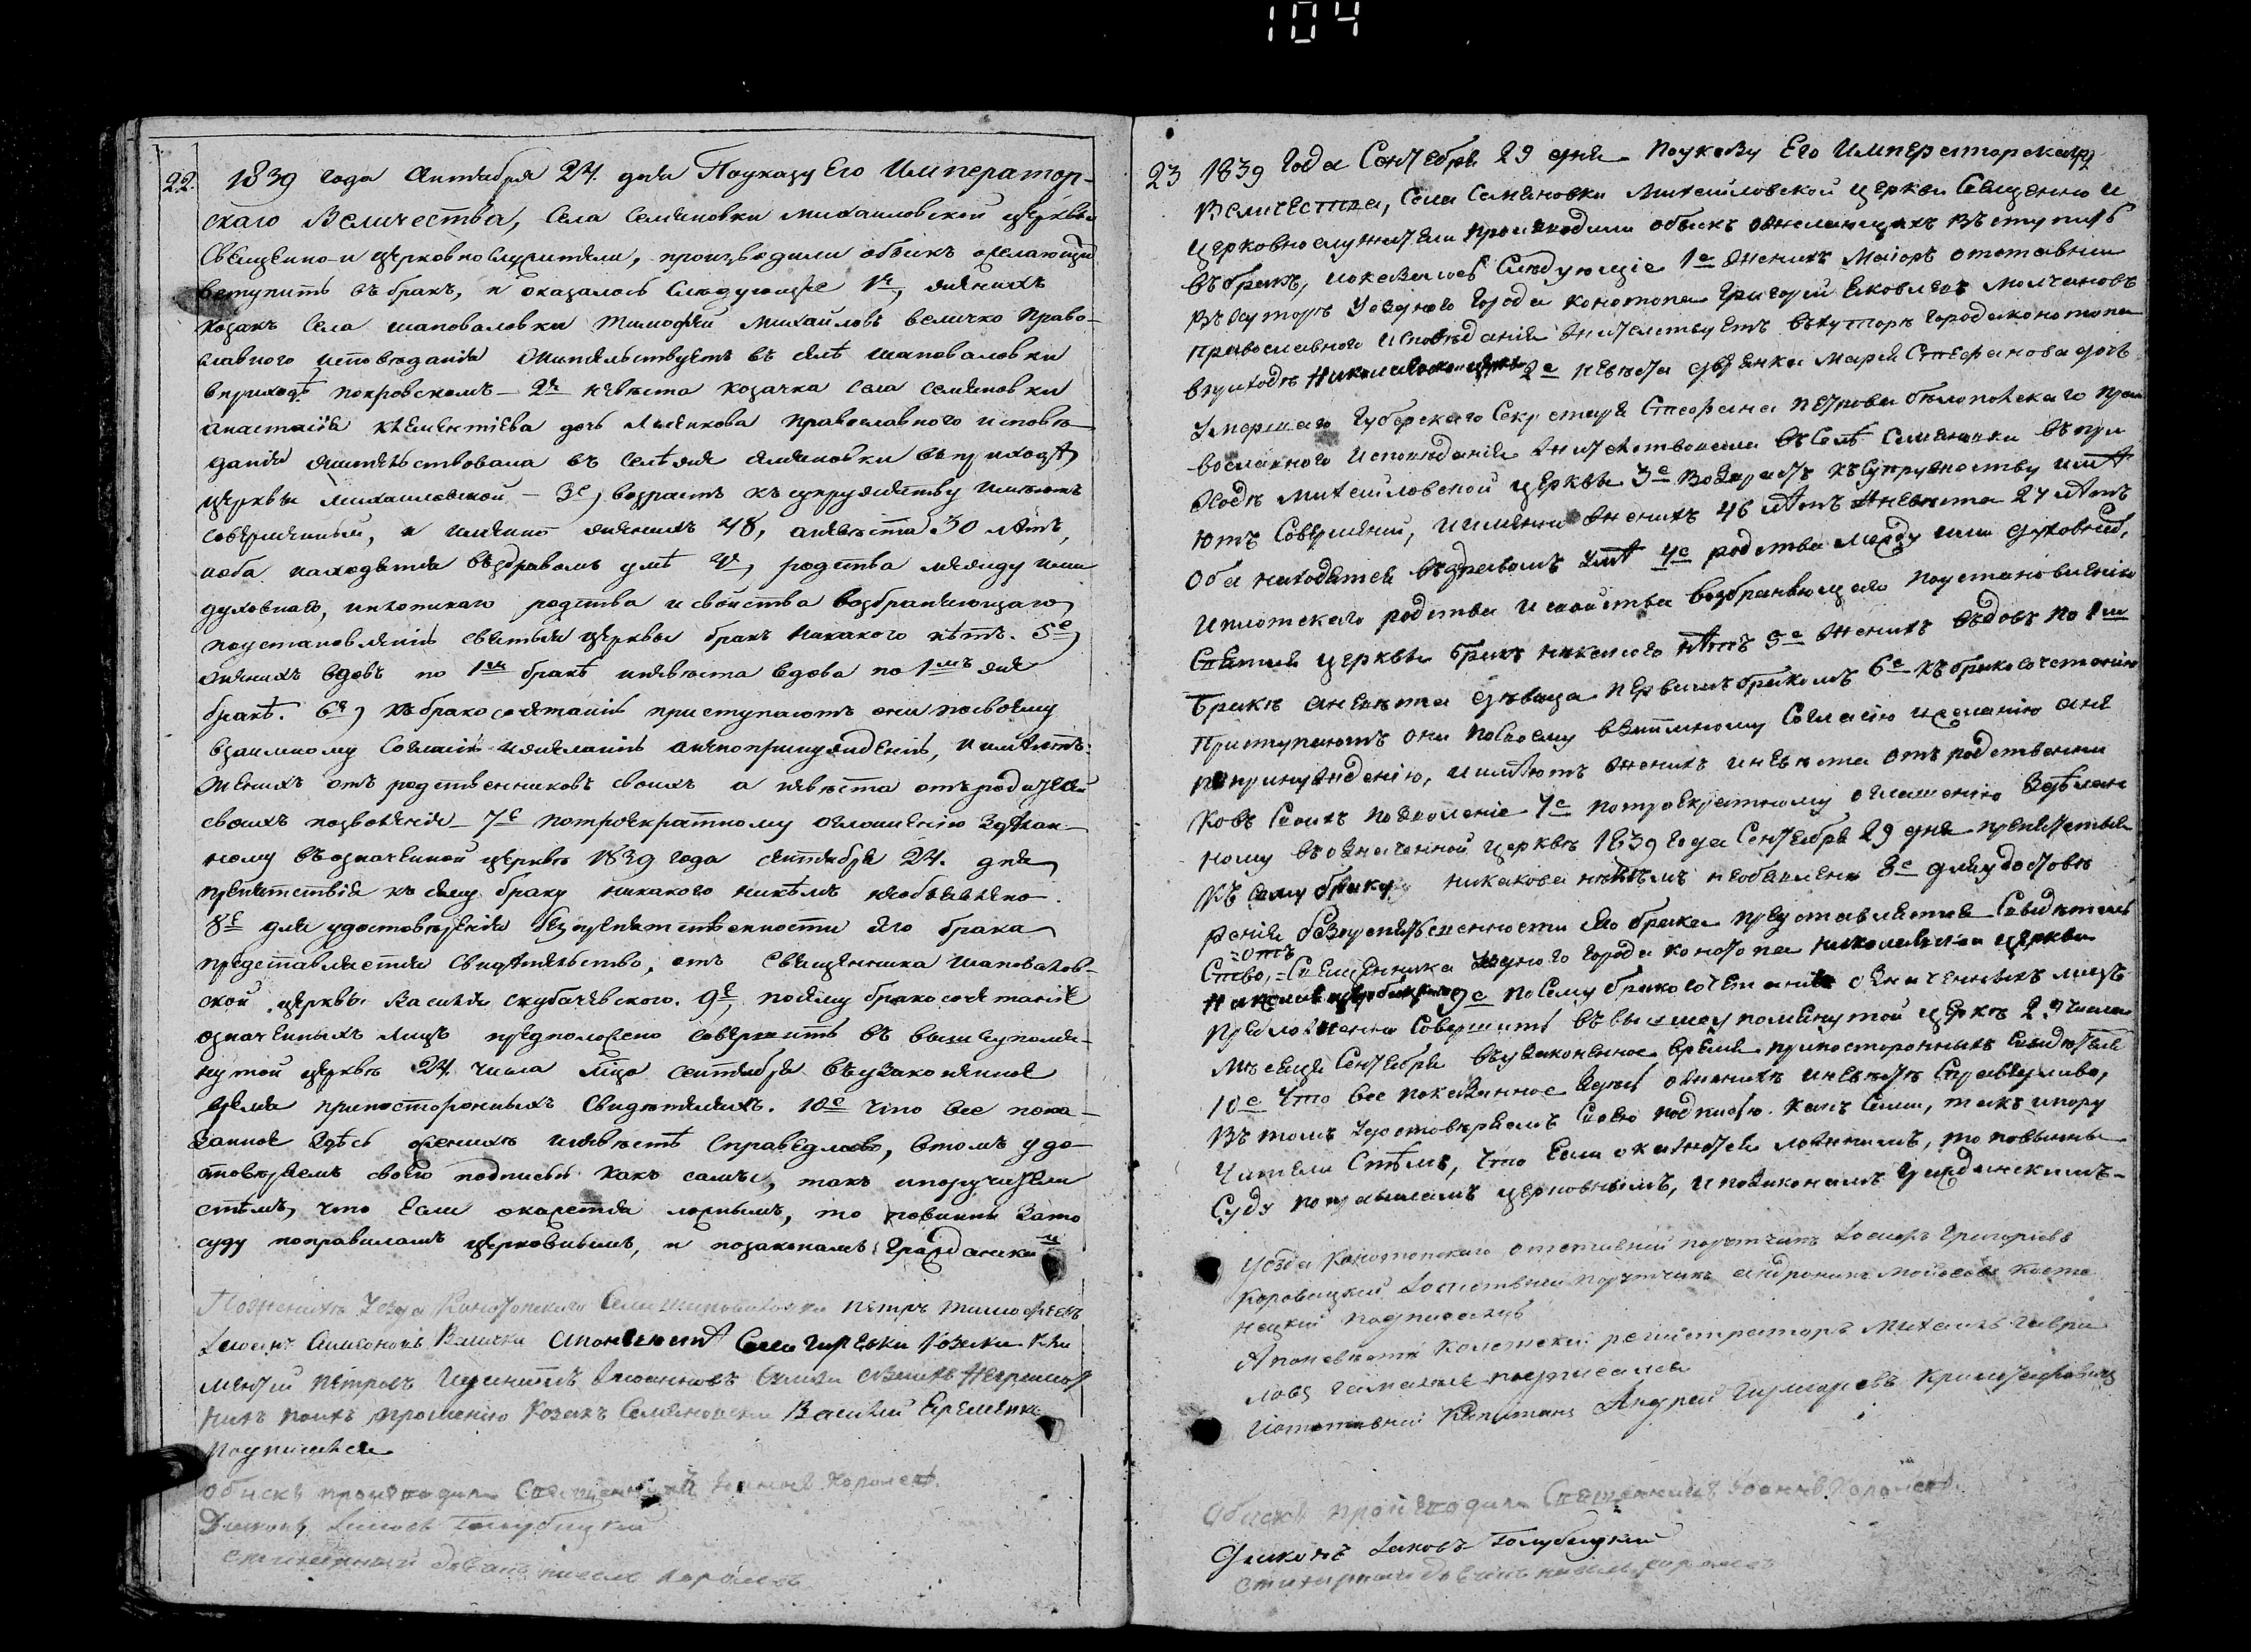 104
22. 1839 года Антября 24. дня Поуказу Его Император-
скаго Величества, Села Семяновки Михаиловской церквы
Священно и церковно служители, производили обыскъ желающи
вступить въ бракъ, и оказалось Следующие 1е, женихъ
козакъ Села шаповаловки Тимофей Михайловъ величко Право-
славного исповеданія Жительствуетъ въ селѣ шаповаловки
вприходѣ покровскомъ - 2е невѣста козачка села семяновки
анастасія клементіева дочь православного исповѣ-
данія жительствовала въ селѣ же семяновки въ приходѣ
церквы михаиловской - 3е, возрастъ къ супружеству имѣютъ
совершенный, и именно женихъ 48, аневѣста 30 лѣтъ,
иоба находятся въздравомъ умѣ 4е, родства между ими
духовнаго, иплотскаго родства и свойства возбраняющаго
поустановленію святыя церквы бракъ никакого нѣтъ. 5е,
женихъ вдовъ по 1мъ бракѣ иневѣста вдова по 1мъ же
бракѣ. 6е, къ бракосочетанію приступаютъ они посвоему
взаимному согласію ижеланію анепопринужденію, и имѣютъ
женихъ отъ родственниковъ своихъ а невѣста отъ родителей
своихъ позволеніе - 7е потроекратному оглашенію здѣлан-
ному въозначеной церквѣ 1839 года сентября 24. дня
препятствія къ сему браку никакого никѣмъ необъявлено.
8е для удостовѣренія безпрепятственности сего брака
представляется свидѣтельство, отъ Священника шаповалов-
ской церквы Василія скубачевского. 9е, посему бракосочетаніе
означенныхъ лицъ предположено совершить въ вышеупомя-
нутой церквѣ 24. числа мѣца сентября въузаконенное
время припосторонныхъ свидѣтеляхъ. 10е что все пока-
занное здѣсь оженихѣ иневѣстѣ справедливо, втомъ удо-
стовѣряемъ своею подписью какъ самы, такъ ипоручители
стѣмъ, что Если окажется ложнымъ, то повинны зато
суду поправиламъ церковнымъ, и позаконамъ гражданскимъ
Поженихѣ Уезда Конотопского Села шаповаловки петръ тимофеевъ
Симоновъ Величка Апоневѣстѣ Села козаки Кли
ментій петровъ Игнатъ Иоанновъ неграмот
нихъ поихъ прошенію Козакъ Семяновски Василий Еременко
подписался
обыскъ производили Священникъ Королевъ
Диаконъ Иаковъ Голубицкий
Королевъ
23 1839 года Сентебря 29 дня Поуказу Его Императорскаго
Величества, Села Семяновки Михайловской церкви Священно и
церковнослужители производили обыскъ ожелающихъ въступить
въбракъ, иоказалось Следующіе 1е Женихъ Маіоръ отставни
въхуторѣ Уезднаго города конотопа Григорий Яковлевъ молчановъ
православного исповѣданія жительствуетъ вхуторѣ городаконотопа
вприходѣ Николаевской церкви 2е невѣста дѣвица Марія Стефанова дочъ
Умершаго Губерскаго Секретаря Стефана петрова бѣлопольскаго пра
вославного Исповѣданія жительствовала въ Селѣ Семяновки въ при
ходѣ михайловской церквы 3е возрастъ къ Супружеству имѣ
ютъ Совершений, иименно женихъ 46 лѣтъ аневѣста 27 лѣтъ
Оба находятся въздравомъ умѣ 4е родства между ими духовнаго,
иплотскаго родства исвойства возбраняющаго поустановленію
Святыя церквы бракъ никакого нѣтъ 5е женихъ въдовъ по 1мъ
бракѣ аневѣста дѣвица первымъ бракомъ 6е къбракосочетанію
Приступаютъ они посвоему взаимному Согласію ижеланію ане
попринужденію, иимѣютъ женихъ иневѣста отъ родственни
ковъ Своихъ позволеніе 7е потроекратному оглашенію здѣлан
ному въозначенной церквѣ 1839 года Сентебря 29 дня препятствія
къ Сему браку никакова никѣмъ необявлено 8е дляудостовѣ
ренія безпрепятственности сего брака представляется Свидѣтель
ство, отъ Священника уезднаго города конотопа николаевской церкви
9е посему бракосочетаніе означенныхъ лицъ
предположенно Совершитъ въвышеупомянутой церквѣ 29 числа
мѣсеца Сентебря въузаконенное время припосторонныхъ свидѣтеле
10е что все показанное здѣсь оженихѣ иневѣстѣ Справедливо,
въ томъ удостовѣряемъ Своею подписью. какъ Сами, такъ ипору
чители Стѣмъ, что Если окажется ложнимъ, то повынны
Суду поправыламъ церковнымъ, ипозаконамъ гражданскимъ -
Уезда Конотопского отставний порутчикъ Григориевъ
Коровицкий порутчикъ андроникъ мойсеевъ косте
нецкий подписался
Апоневѣстѣ Колежский регистраторъ Михаилъ Гаври
ловъ подписался
Иотставний Капитанъ Андрей Григориевъ
Обискъ производили Священникъ Иоаннъ Королевъ
Диаконъ Иаковъ Голубицкий
Королевъ